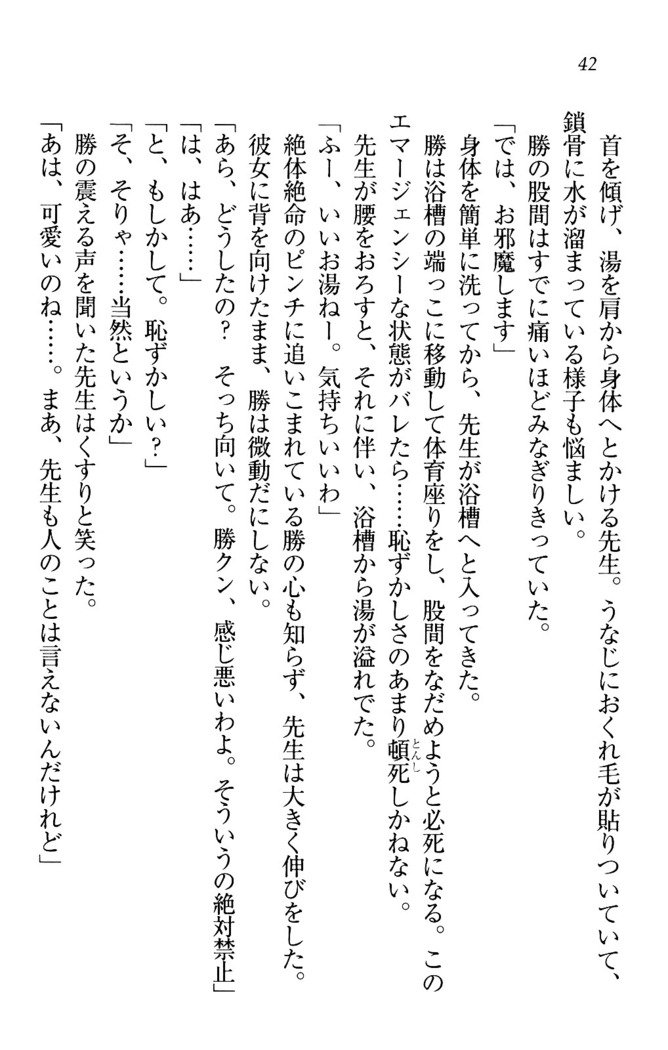 42
首を傾げ、湯を肩から身体へとかける先生。うなじにおくれ毛が貼りついていて、
鎖骨に水が溜まっている様子も悩ましい。
勝の股間はすでに痛いほどみなぎりきっていた。
「では、お邪魔します」
身体を簡単に洗ってから、先生が浴槽へと入ってきた。
勝は浴槽の端っこに移動して体育座りをし、股間をなだめようと必死になる。この
エマージェンシーな状態がバレたら……恥ずかしさのあまり頓死しかねない。
とんし
先生が腰をおろすと、それに伴い、浴槽から湯が溢れでた。
「ふー、いいお湯ねー。気持ちいいわ」
絶体絶命のピンチに追いこまれている勝の心も知らず、先生は大きく伸びをした。
彼女に背を向けたまま、勝は微動だにしない。
「あら、どうしたの？　そっち向いて。勝クン、感じ悪いわよ。そういうの絶対禁止」
「は、はあ……」
「と、もしかして。恥ずかしい？」
「そ、そりゃ……当然というか」
勝の震える声を聞いた先生はくすりと笑った。
「あは、可愛いのね……。まあ、先生も人のことは言えないんだけれど」